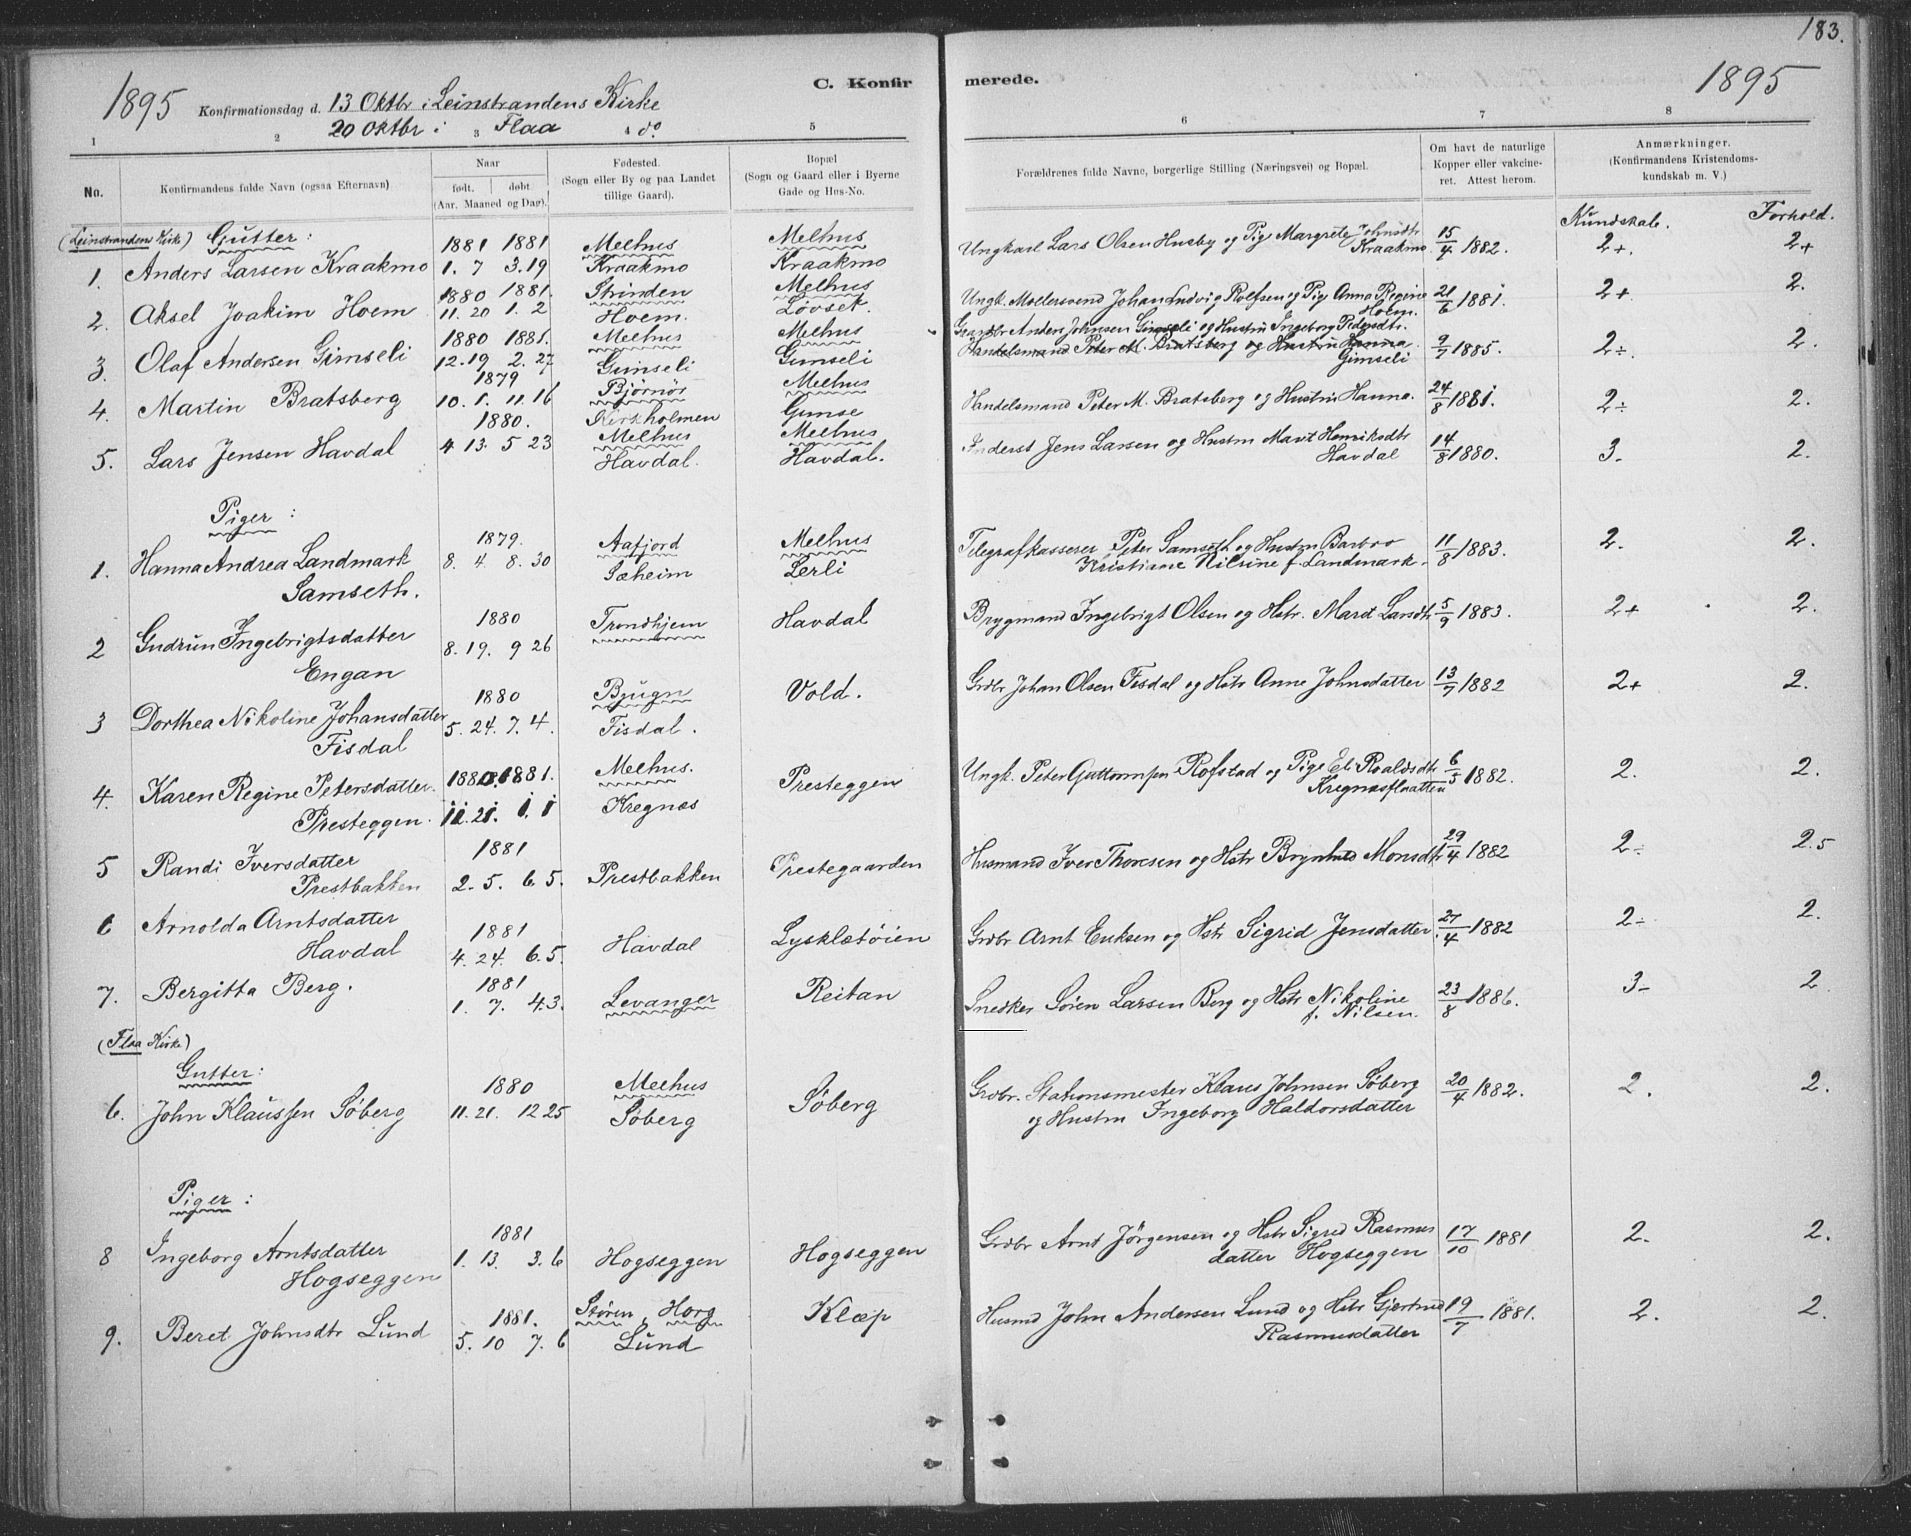 183.
1895 Konfirmationsdag d. 13 Oktbr i Leinstrandens Kirke C. Konfirmerede. 1895
20 Oktbr i Flaa do
1 2 3 4 5 6 7 8
No. Konfirmandens fulde Navn (ogsaa Efternavn) Naar født. døbt. (Aar, Maaned og Dag). Fødested. (Sogn eller By og paa Landet tillige Gaard). Bopæl (Sogn og Gaard eller i Byerne Gade og Hus-No. Forældrenes fulde Navne, borgerlige Stilling (Næringsvei) og Bopæl. Om havt de naturlige Kopper eller vakcineret. Attest herom. Anmærkninger. (Konfirmandens Kristendomskundskab m. V.)
(Leinstrandens Kirke) Gutter: Kundskab. Forhold.
1881 1881 Melhus Melhus Ungkarl Lars Olsen Husby og Pig Margrete Johnsdtr 15/4 1882. 2+. 2+
1. Anders Larsen Kraakmo 1. 7 3.19 Kraakmo Kraakmo Kraakmo
1880 1881. Strinden Melhus Ungk. Møllersvend Johan Ludvig Rolfsen og Pig Anna Regine 21/6 1881. 2+ 2.
2. Aksel Joakim Hoem 11. 20 1. 2 Hoem. Løvset. Holm.
1880 1881. Melhus Melhus Grardbr Anders Johnsen Gimseli og Hustru Ingeborg Pedersdtr.
3. Olaf Andersen Gimseli 12.19 2.27 Gimseli Gimseli Handelsmand Peter M. Bratsberg og Hustru Hanna Gimseli 9/7 1885. 2÷. 2.
1879 Bjørnør Melhus
4. Martin Bratsberg 10. 1. 11. 16 Kirkholmen Gimse Handelsmand Peter M. Bratsberg og Hustru Hanna. 24/8 1881. 2÷ 2.
1880. Melhus Melhus
5. Lars Jensen Havdal 4 13. 5 23 Havdal. Havdal. Inderst Jens Larsen og Hustru Marit Henriksdtr Havdal 14/8 1880. 3- 2.
Piger:
1879. Aafjord Melhus
1. Hanna Andrea Landmark 8. 4. 8. 30 Sæheim Lerli Telegrafkasserer Peter Samseth og Hustru Barbro 11/8 1883. 2. 2.
Samseth. Kristiane Nilsine f. Landmark.
1880
2 Gudrun Ingebrigtsdatter 8. 19. 9 26 Trondhjem Havdal Brygmand Ingebrigt Olsen og Hstr. Marit Larsdtr 5/9 1883. 2+ 2.
Engan
1880 Bjugn
3 Dorthea Nikoline Johansdatter 5. 24. 7. 4. Fisdal. Vold. Grdbr Johan Olsen Fisdal og Hstr Anne Johnsdatter 13/7 1882 2+ 2.
Fisdal
1880 1881. Melhus.
4. Karen Regine Petersdatter Kregnæs Presteggen Ungk. Peter Guttormsen Rofstad og Pige Eli Roaldsdtr 6/5 1882. 2. 2.
Presteggen. 11. 21. 1. 1 Kregnæsflaatten
1881
5 Randi Iversdatter Husmand Iver Thoresen og Hstr Brynhild Monsdtr 29/4 1882 2÷ 2.5
Prestbakken 2. 5. 6. 5. Prestbakken Prestegaarden
1881
6 Arnolda Arntsdatter Grdbr Arnt Eriksen og Hstr Sigrid Jensdatter 27/4 1882 2÷ 2.
Havdal 4. 24. 6. 5. Havdal Lyskletøien
1881
7. Bergitta Berg. 1. 7. 4.3. Levanger Reitan Snedker Sören Larsen Berg og Hstr Nikoline f. Nilsen. 23/8 1886. 3- 2
(Flaa Kirke)
Gutter:
1880 Melhus
6. John Klaussen Söberg 11. 21. 12 25 Söberg Söberg Grdbr. Stationsmester Klaus Johnsen Söberg 20/4 1882. 2. 2.
og Hustru Ingeborg Haldorsdatter
Piger:
1881
8 Ingeborg Arntsdatter 1. 13. 3. 6 Hogseggen Hogseggen Grdbr Arnt Jörgensen og Hstr Sigrid Rasmus 17/10 1881 2. 2.
Hogseggen datter Hogseggen
1881. Støren, Horg
9. Beret Johnsdtr Lund 5. 10 7. 6 Lund Klæp Husmd John Andersen Lund og Hstr Gjertrud 19/7 1881. 2. 2.
Rasmusdatter